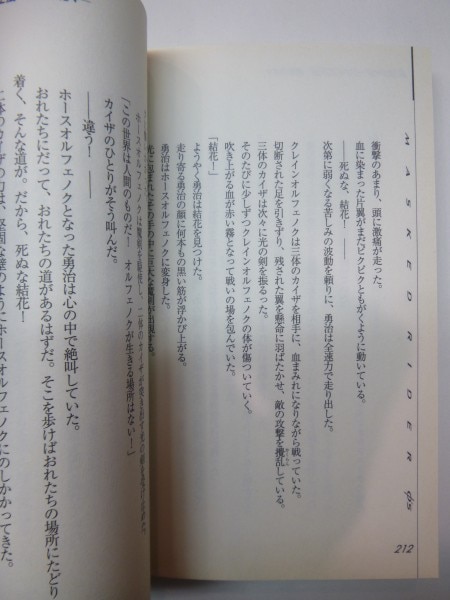 MASKED RIDER φ's
衝撃のあまり、頭に激痛が走った。
血に染まった片翼がまだピクピクともがくように動いている。
――死ぬな、結花！――
次第に弱くなる苦しみの波動を頼りに、勇治は全速力で走り出した。
クレインオルフェノクは三体のカイザを相手に、血まみれになりながら戦っていた。
切断された足を引きずり、残された翼を懸命に羽ばたかせ、敵の攻撃を攪乱している。
三体のカイザは次々に光の剣を振るった。
そのたびに少しずつクレインオルフェノクの体が傷ついていく。
吹き上がる血が赤い霧となって戦いの場を包んでいた。
「結花！」
ようやく勇治は結花を見つけた。
走り寄る勇治の顔に何本もの黒い筋が浮かび上がる。
勇治はホースオルフェノクに変身した。
212
「この世界は人間のものだ！　オルフェノクが生きる場所はない！」
カイザのひとりがそう叫んだ。
――違う！――
ホースオルフェノクとなった勇治は心の中で絶叫していた。
おれたちにだって、おれたちの道があるはずだ。そこを歩けばおれたちの場所にたどり
着く、そんな道が。だから、死ぬな結花！